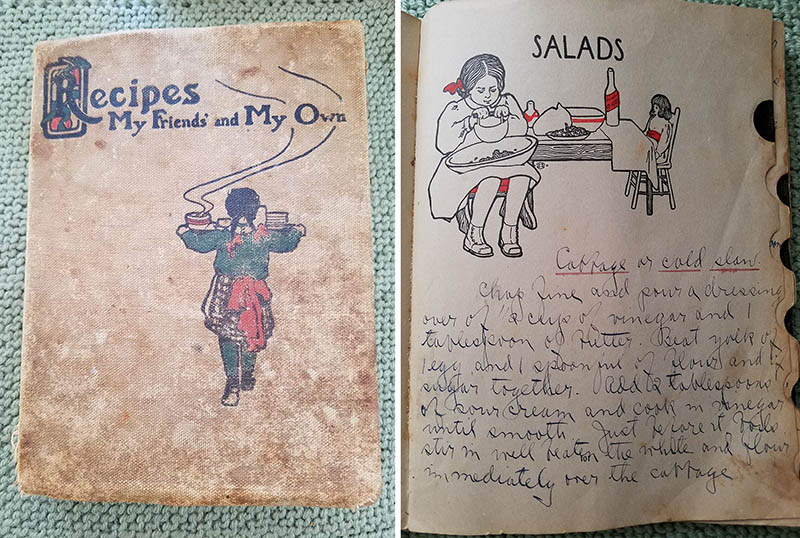 Recipes
My Friends' and My Own
SALADS
Cabbage or cold slaw.
Chop fine and pour a dressing
over of ½ cup of vinegar and 1
tablespoon of butter. Beat yolk of
1 egg and 1 spoonful of flour and
sugar together. Add 2 tablespoons
of sour cream and cook in vinegar
until smooth. Just before it boils
stir in well beaten the white and pour
immediately over the cabbage